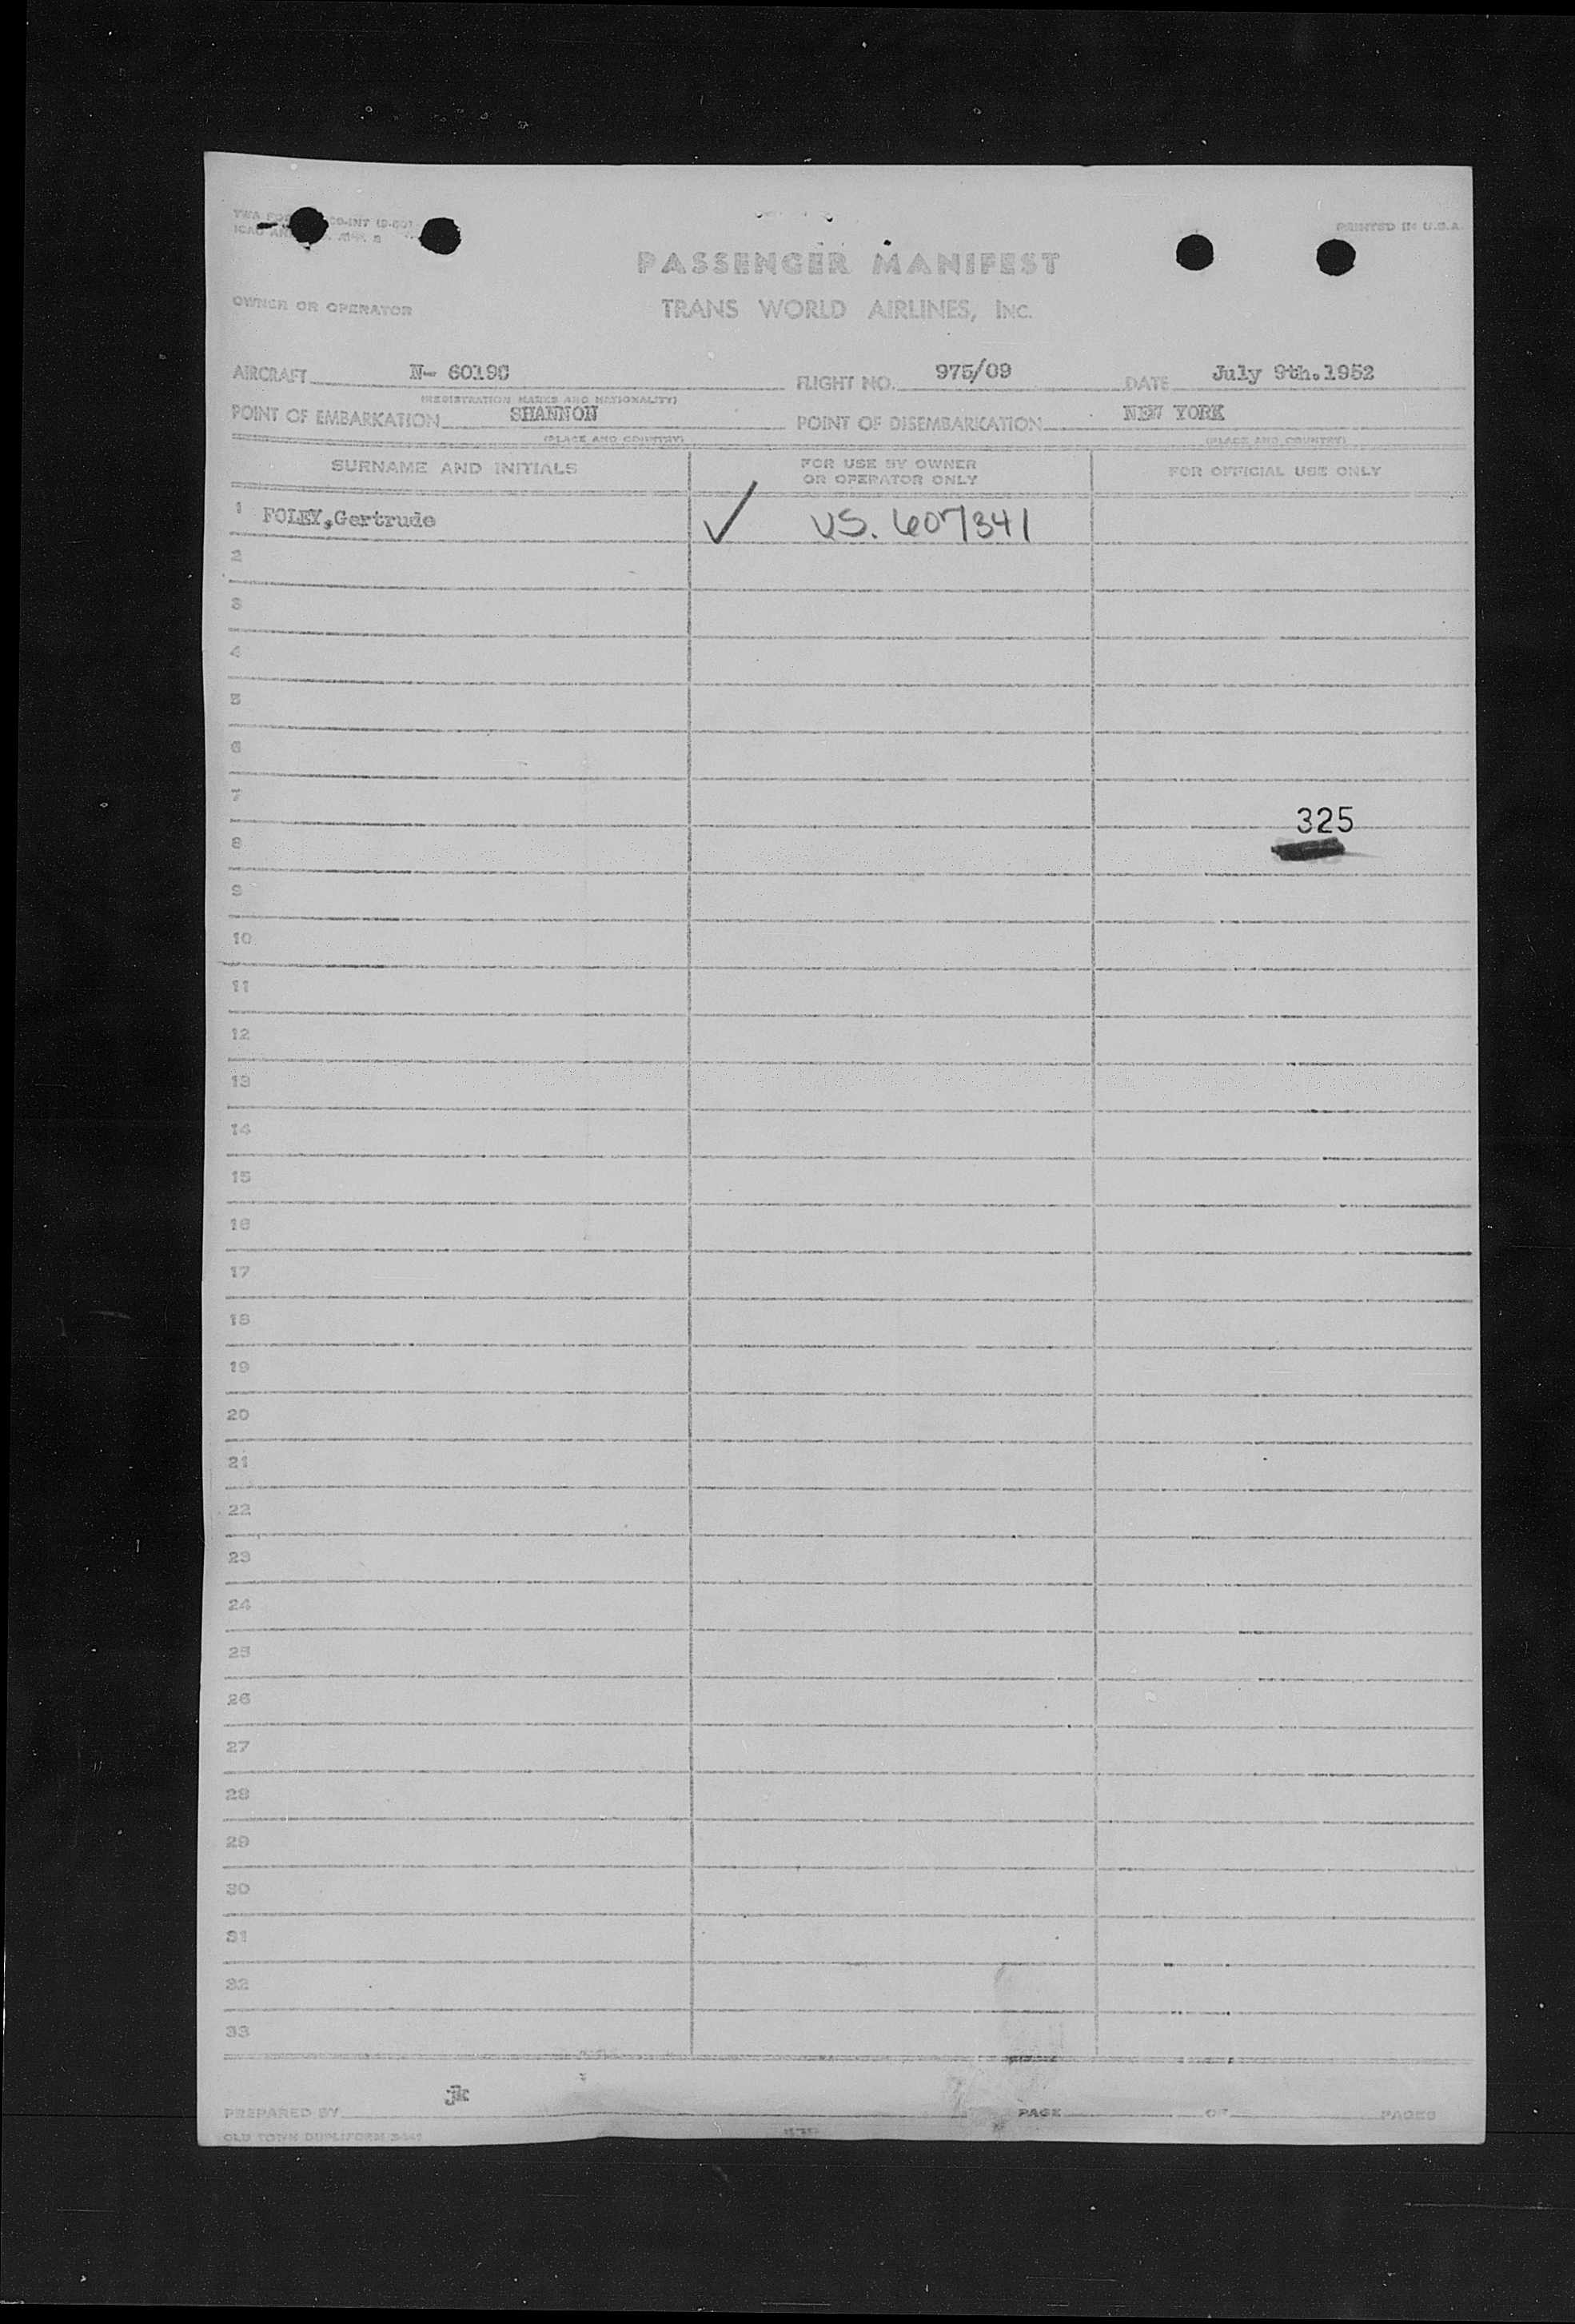 PRINTED IN U.S.A.
PASSENGER MANIFEST
OWNER OR OPERATOR TRANS WORLD AIRLINES, INC.
AIRCRAFT N- 6019C FLIGHT NO. 975/09 DATE July 9th.1952
(REGISTRATION MARKS AND NATIONALITY)
POINT OF EMBARKATION SHANNON POINT OF DISEMBARKATION NEW YORK
(PLACE AND COUNTRY) (PLACE AND COUNTRY)
SURNAME AND INITIALS FOR USE BY OWNER OR OPERATOR ONLY FOR OFFICIAL USE ONLY
1 FOLEY,Gertrude ✓ US. 607341
2
3
4
5
6
7
325
8
9
10
11
12
13
14
15
16
17
18
19
20
21
22
23
24
25
26
27
28
29
30
31
32
33
PREPARED BY jk PAGE OF PAGES
OLD TOWN DUPLIFORM